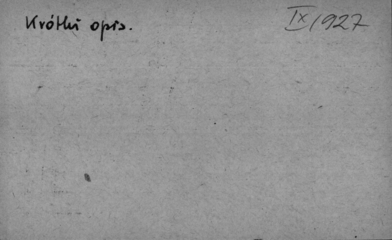 Krótki opis.
IX 1927